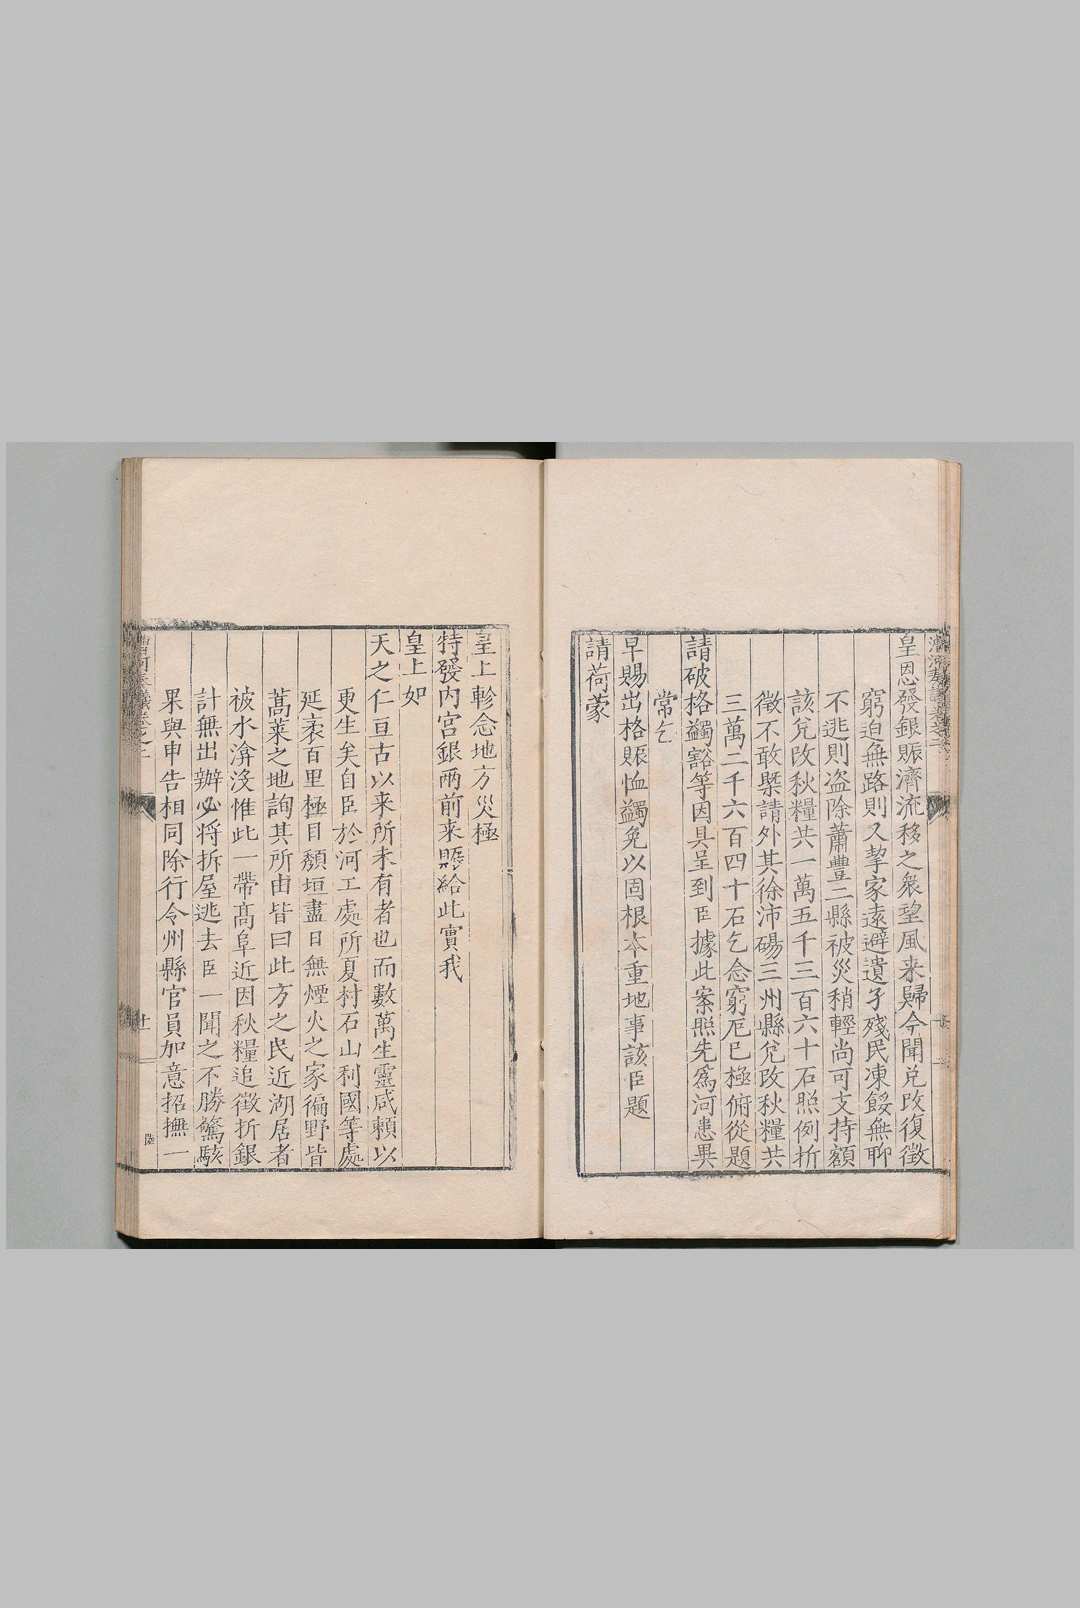 皇恩發銀賑濟流移之衆望風来歸今聞兌改復徵
窮迫無路則又挈家遠避遺孑殘民凍餒無聊
不逃則盗除蕭豐二縣被災稍輕尚可支持額
該兌改秋糧共一萬五千三百六十石照例折
徵不敢槩請外其徐沛碭三州縣兌改秋糧共
三萬二千六百四十石乞念窮厄已極俯從題
請破格蠲豁等因具呈到臣據此案照先為河患異
常乞
早賜出格賑恤蠲免以固根本重地事該臣題
請荷蒙
皇上軫念地方災極
特發内宫銀兩前来賑給此實我
皇上如
天之仁亘古以来所未有者也而數萬生靈咸頼以
更生矣自臣於河工處所夏村石山利國等處
延袤百里極目頽垣盡日無煙火之家徧野皆
蒿萊之地詢其所由皆曰此方之民近湖居者
被水渰没惟此一帶髙阜近因秋糧追徵折銀
計無出辦必将拆屋逃去臣一聞之不勝驚駭
果與申告相同除行令州縣官員加意招撫一
十一